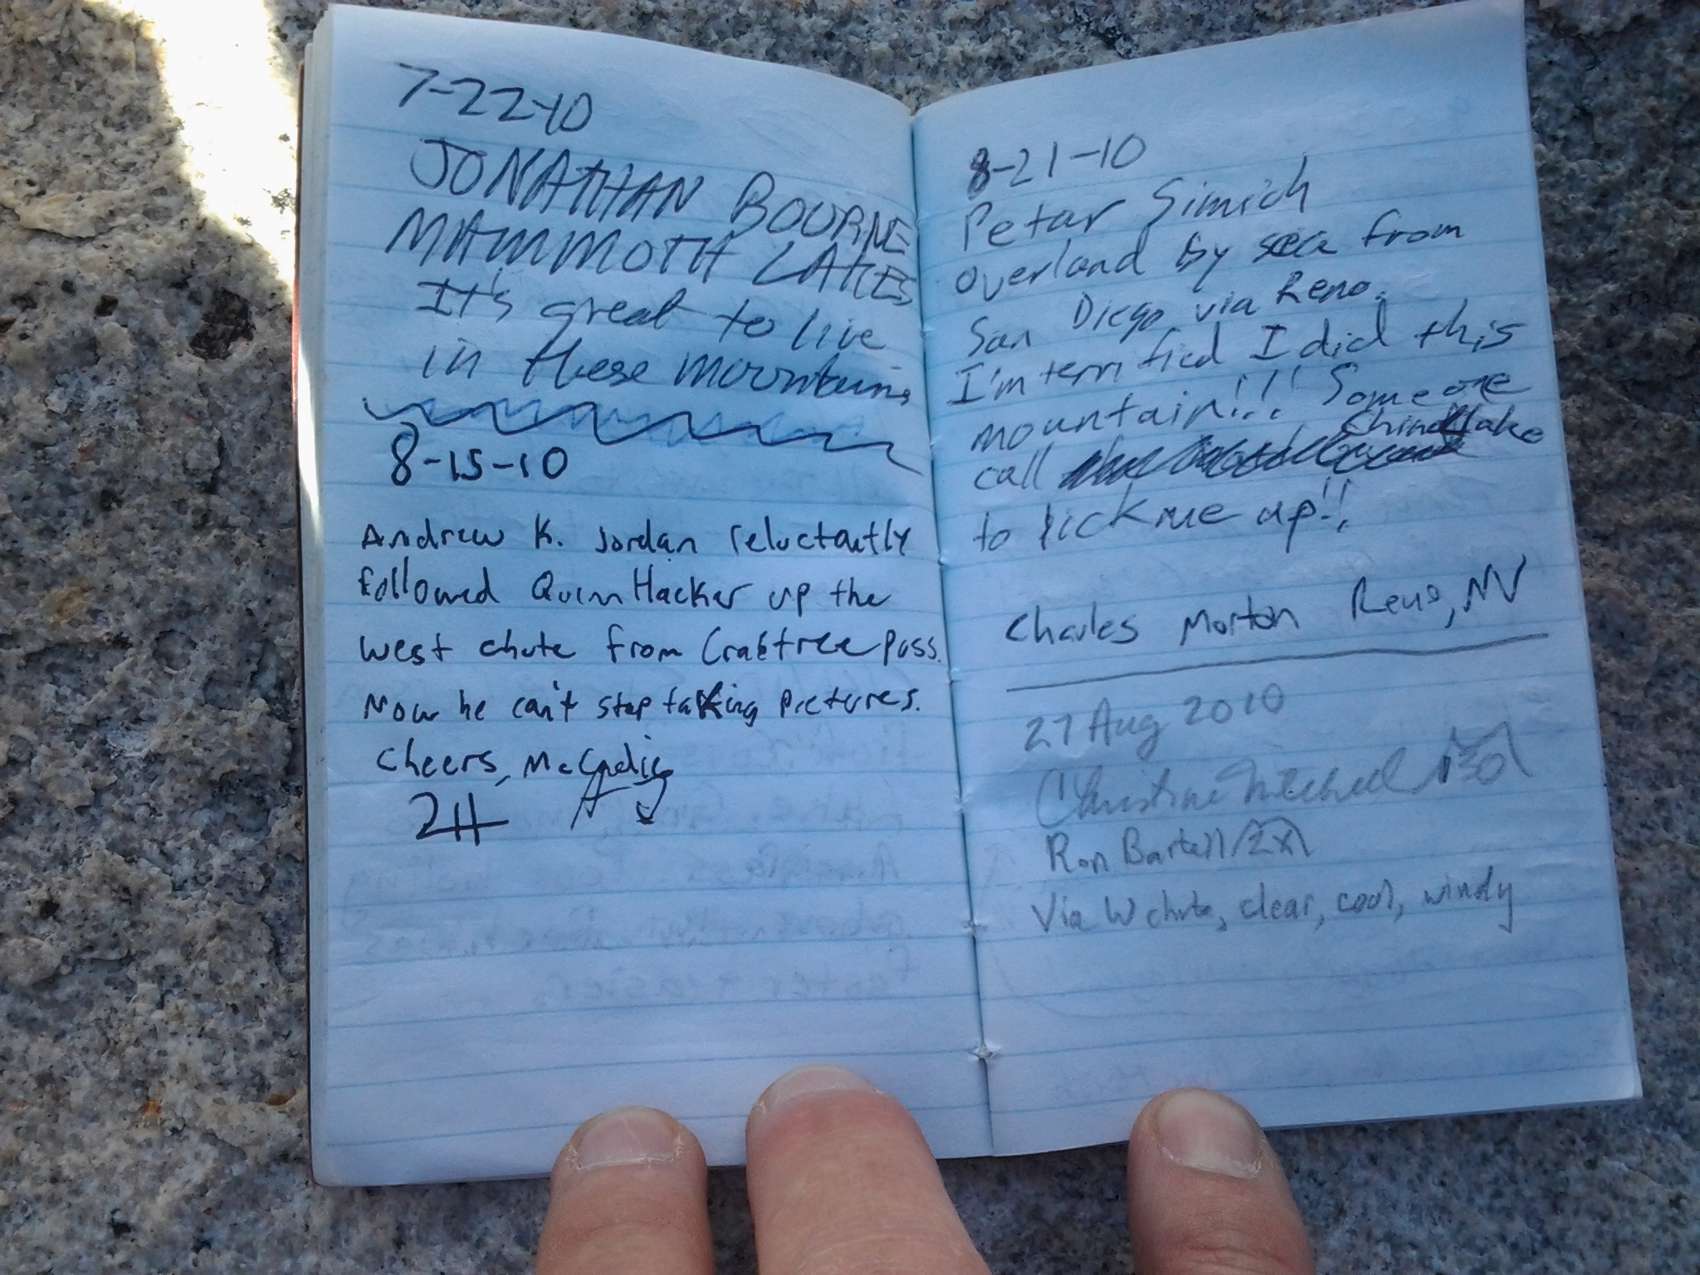 7-22-10
JONATHAN BOURNE
MAMMOTH LAKES
It's great to live
in these mountains
8-15-10
Andrew K. Jordan reluctantly
followed Quinn Hacker up the
west chute from Crabtree pass.
Now he can't stop taking pictures.
Cheers,
8-21-10
Petar Simich
overland by sea from
San Diego via Reno.
I'm terrified I did this
mountain!!! Someone
call China Lake
to pick me up!!
Charles Morton Reno, NV
27 Aug 2010
Christine Mitchell
Ron Bartell
Via W chute, clear, cool, windy